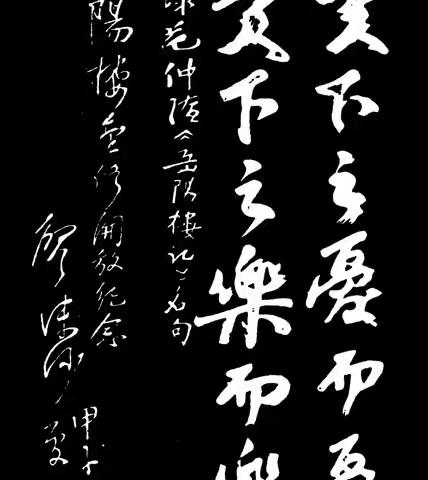 天下之憂而憂
天下之樂而樂
范仲淹《岳陽樓記》名句
陽樓重修開放紀念
廖沫沙
甲子夏